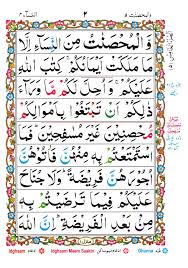 النسآء ٤ ٢ والمحصنت ٥
وَالْمُحْصَنٰتُ مِنَ النِّسَآءِ اِلَّا
مَا مَلَكَتْ اَيْمَانُكُمْ كِتٰبَ اللّٰهِ
عَلَيْكُمْ وَاُحِلَّ لَكُمْ مَّا وَرَآءَ
ذٰلِكُمْ اَنْ تَبْتَغُوْا بِاَمْوَالِكُمْ
مُّحْصِنِيْنَ غَيْرَ مُسٰفِحِيْنَ فَمَا
اسْتَمْتَعْتُمْ بِهٖ مِنْهُنَّ فَاٰتُوْهُنَّ
اُجُوْرَهُنَّ فَرِيْضَةً وَلَا جُنَاحَ
عَلَيْكُمْ فِيْمَا تَرٰضَيْتُمْ بِهٖ
مِنْۢ بَعْدِ الْفَرِيْضَةِ اِنَّ اللّٰهَ
Idgham Idgham Meem Saakin Ghunna